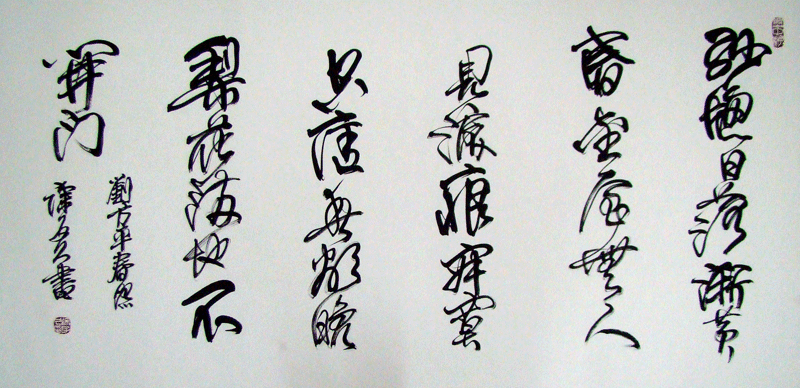 紗窗日落漸黃
昏金屋無人
見淚痕寂寞
空庭春欲晚
梨花滿地不
開門
劉方平春怨
譚書